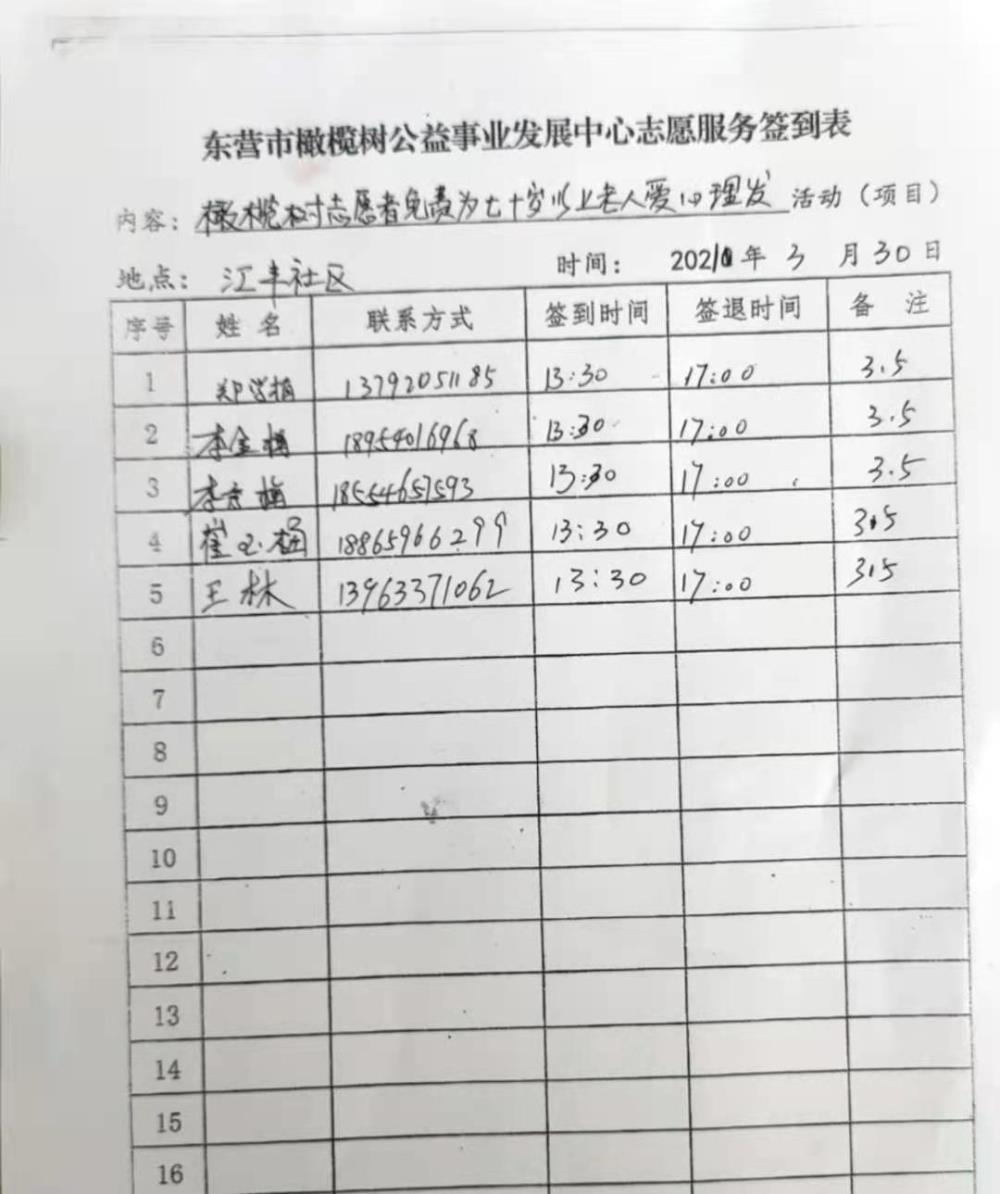 东营市橄榄树公益事业发展中心志愿服务签到表
内容：橄榄树志愿者免费为七十岁以上老人爱心理发活动（项目）
地点：江丰社区 时间：2021年3月30日
序号 姓名 联系方式 签到时间 签退时间 备注
1 13792051185 13:30 17:00 3.5
2 李金梅 18954016968 13:30 17:00 3.5
3 18554657593 13:30 17:00 3.5
4 崔玉梅 18865966299 13:30 17:00 3.5
5 王林 13963371062 13:30 17:00 3.5
6
7
8
9
10
11
12
13
14
15
16